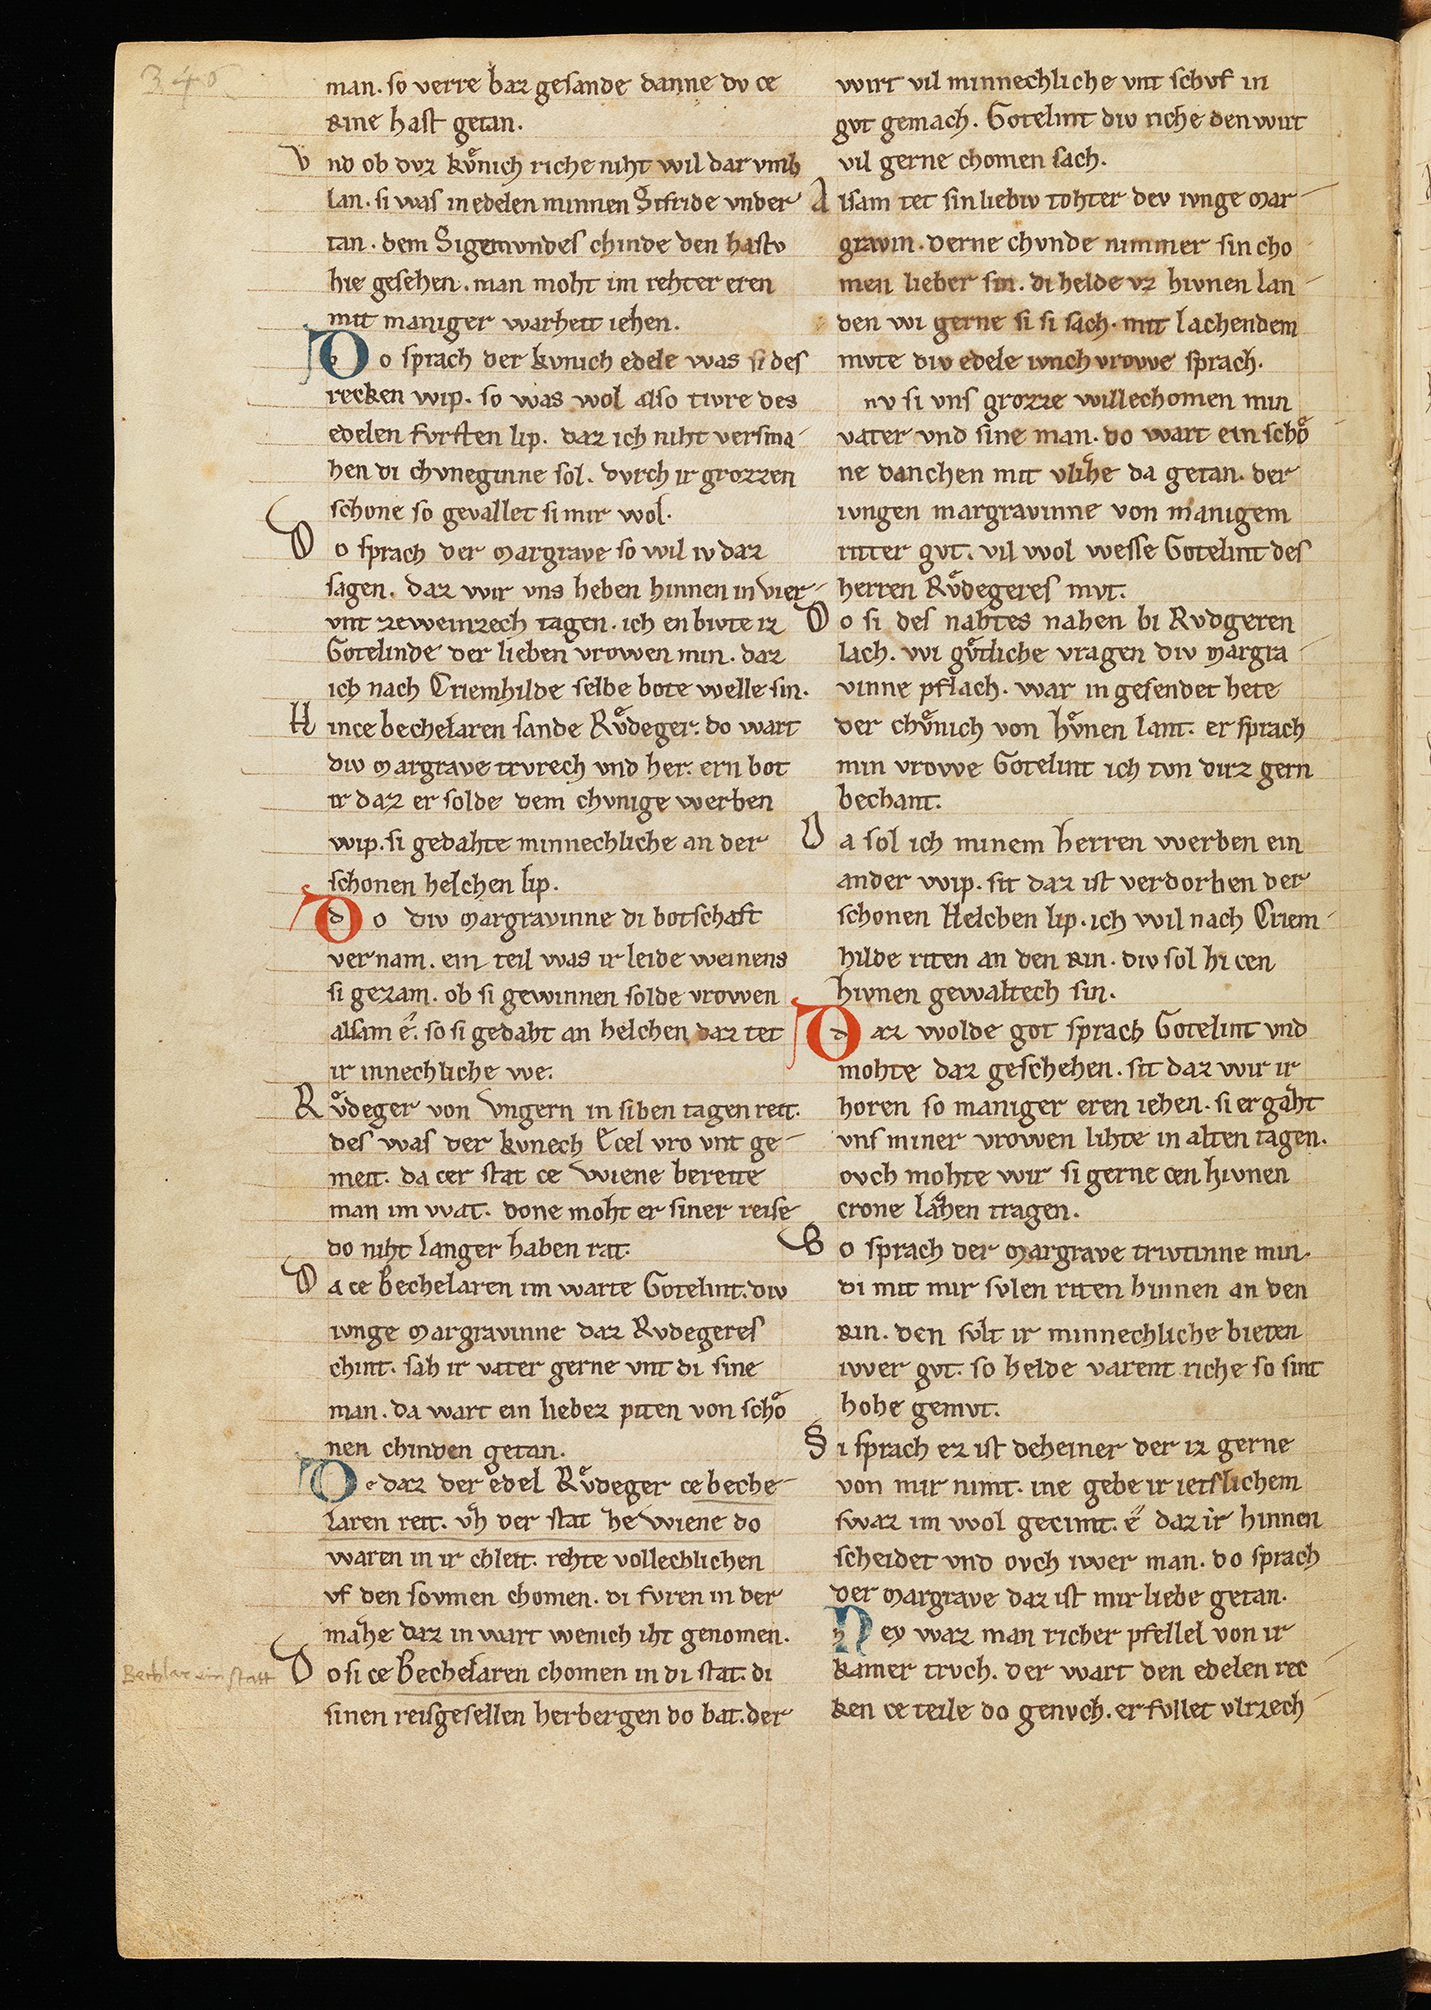 340
man. so verre baz gesande danne dv ce
Rine hast getan.
Vnd ob dvz kv̊nich riche niht wil dar vmb
lan. si was in edelen minnen Sifride vnder
tan. dem Sigemvndes chinde den hastv
hie gesehen. man moht im rehter eren
mit maniger warheit iehen.
Do sprach der kvnich edele was si des
recken wip. so was wol also tivre des
edelen fvrsten lip. daz ich niht versma
hen di chvneginne sol. dvrch ir grozzen
schone so gevallet si mir wol.
Do sprach der margrave so wil iv daz
sagen. daz wir vns heben hinnen in vier
vnt zeweinzech tagen. ich en bivte iz
Gotelinde der lieben vrowen min. daz
ich nach Criemhilde selbe bote welle sin.
Hince bechelaren sande Rv̊deger. do wart
div margrave trvrech vnd her. ern bot
ir daz er solde dem chvnige werben
wip. si gedahte minnechliche an der
schonen helchen lip.
Do div margravinne di botschaft
vernam. ein teil was ir leide weinens
si gezam. ob si gewinnen solde vrowen
alsam e. so si gedaht an helchen daz tet
ir innechliche we.
Rv̊deger von vngern in siben tagen reit.
des was der kvnech Ecel vro vnt ge
meit. da cer stat ce wiene bereite
man im wat. done moht er siner reise
do niht langer haben rat.
Da ce Bechelaren im warte Gotelint. div
ivnge margravinne daz Rvdegeres
chint. sah ir vater gerne vnt di sine
man. da wart ein liebez piten von scho̊
nen chinden getan.
De daz der edel Rv̊deger ce beche
laren reit. vh der stat he wiene do
waren in ir chleit. rehte vollechlichen
vf den sovmen chomen. di fvren in der
mahe daz in wart wenich iht genomen.
Do si ce Bechelaren chomen in di stat. di
sinen reisgesellen herbergen do bat. der
Bechlar ein statt
wirt vil minnechliche vnt schvf in
gvt gemach. Gotelint div riche den wirt
vil gerne chomen sach.
Alsam tet sin liebiv tohter dev ivnge mar
gravin. derne chvnde nimmer sin cho
men lieber sin. di helde vz hivnen lan
den wi gerne si si sach. mit lachendem
mvte div edele ivnch vrowe sprach.
nv si vns grozze willechomen min
vater vnd sine man. do wart ein scho̊
ne danchen mit vlihe da getan. der
ivngen margravinne von manigem
ritter gvt. vil wol wesse Gotelint des
herren Rv̊degeres mvt.
Do si des nahtes nahen bi Rvdgeren
lach. wi gv̊tliche vragen div margra
vinne pflach. war in gesendet hete
der chv̊nich von hv̊nen lant. er sprach
min vrowe Gotelint ich tvn dirz gern
bechant.
Da sol ich minem herren werben ein
ander wip. sit daz ist verdorben der
schonen Helchen lip. ich wil nach Criem
hilde riten an den Rin. div sol hi cen
hivnen gewaltech sin.
Daz wolde got sprach Gotelint vnd
mohte daz geschehen. sit daz wir ir
horen so maniger eren iehen. si ergaht
vns miner vrowen lihte in alten tagen.
ovch mohte wir si gerne cen hivnen
crone lahen tragen.
Do sprach der margrave trivtinne min.
di mit mir svlen riten hinnen an den
Rin. den svlt ir minnechliche bieten
iwer gvt. so helde varent riche so sint
hohe gemvt.
Si sprach ez ist deheiner der iz gerne
von mir nimt. ine gebe ir ietslichem
swaz im wol gecimt. e daz ir hinnen
scheidet vnd ovch iwer man. do sprach
der margrave daz ist mir liebe getan.
Hey waz man richer pfellel von ir
kamer trvch. der wart den edelen rec
ken ce teile do genvch. erfvllet vlizech